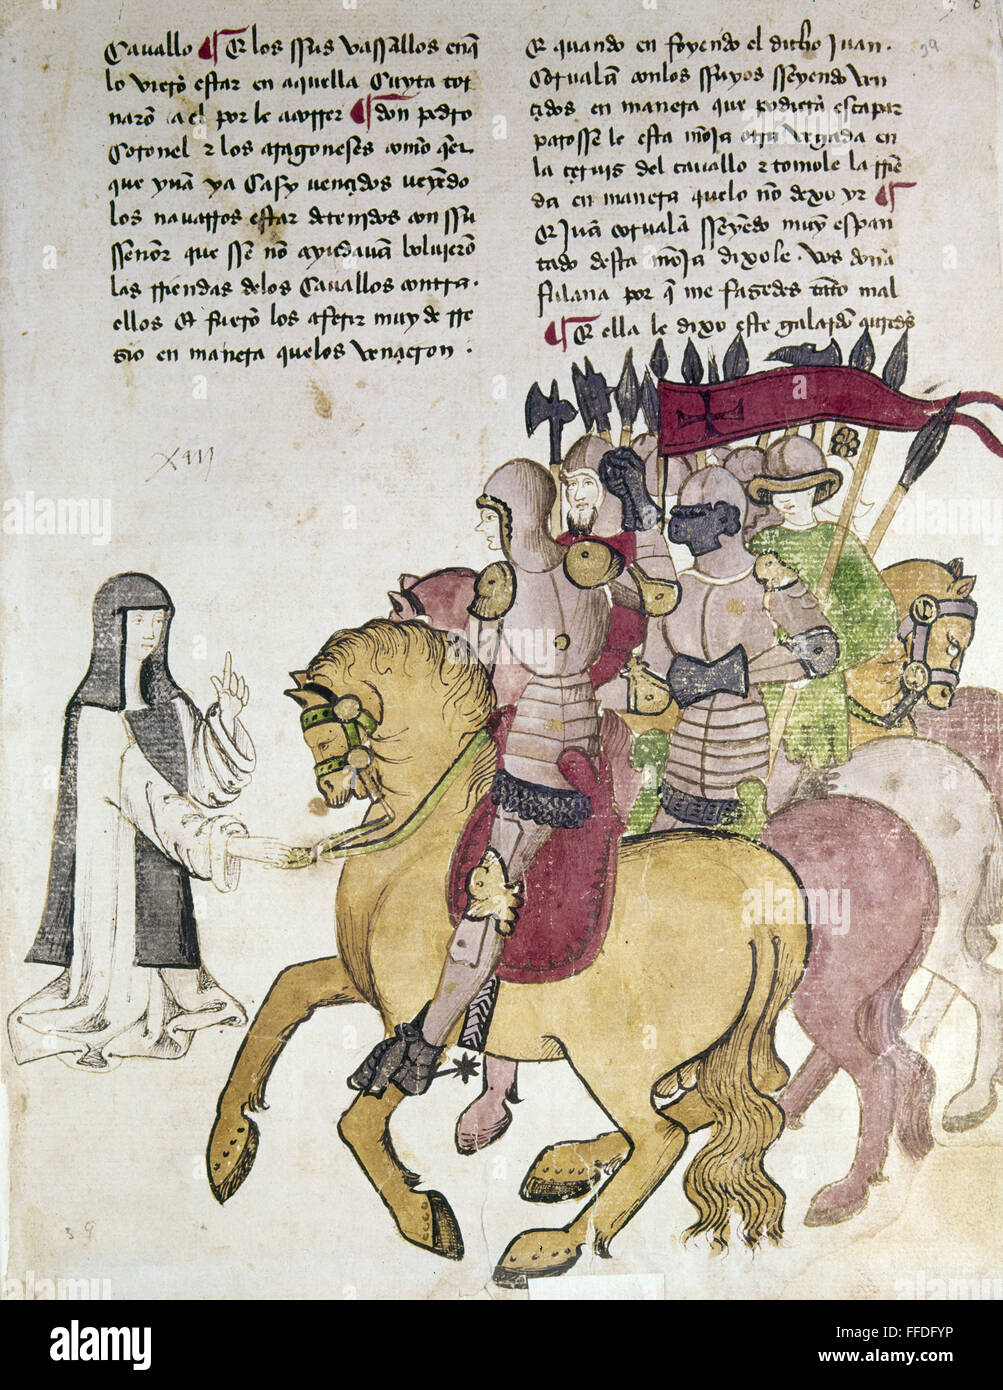 cauallo ¶ E los sus vassallos enq̃
lo vierõ estar en aquella cuyta tor
narõ a el por le acorrer ¶ don pedro
coronel e los aragoneses como q̃er
que yuã ya casy vençidos veyẽdo
los nauarros estar detenidos con ssu
sseñor que sse nõ ayudauã boluierõ
las rriendas delos cauallos contra
ellos Et fuerõ los aferir muy de rre
zio en manera quelos vençieron .
E quando en foyendo el dicho iuan
corualã conlos ssuyos sseyendo ven
çidos en manera que podierã escapar
parosse le esta mõja otra vegada en
la çeruis del cauallo e tomole la rriẽ
da en manera quelo nõ dexo yr ¶
E iuã corualã sseyẽdo muy espan
tado desta mõja dixole . vos doña
fulana por q̃ me fazedes tãto mal
¶ E ella le dixo este galardõ
XIII
39
39
alamy stock photo
Image ID: FFDFYP
www.alamy.com